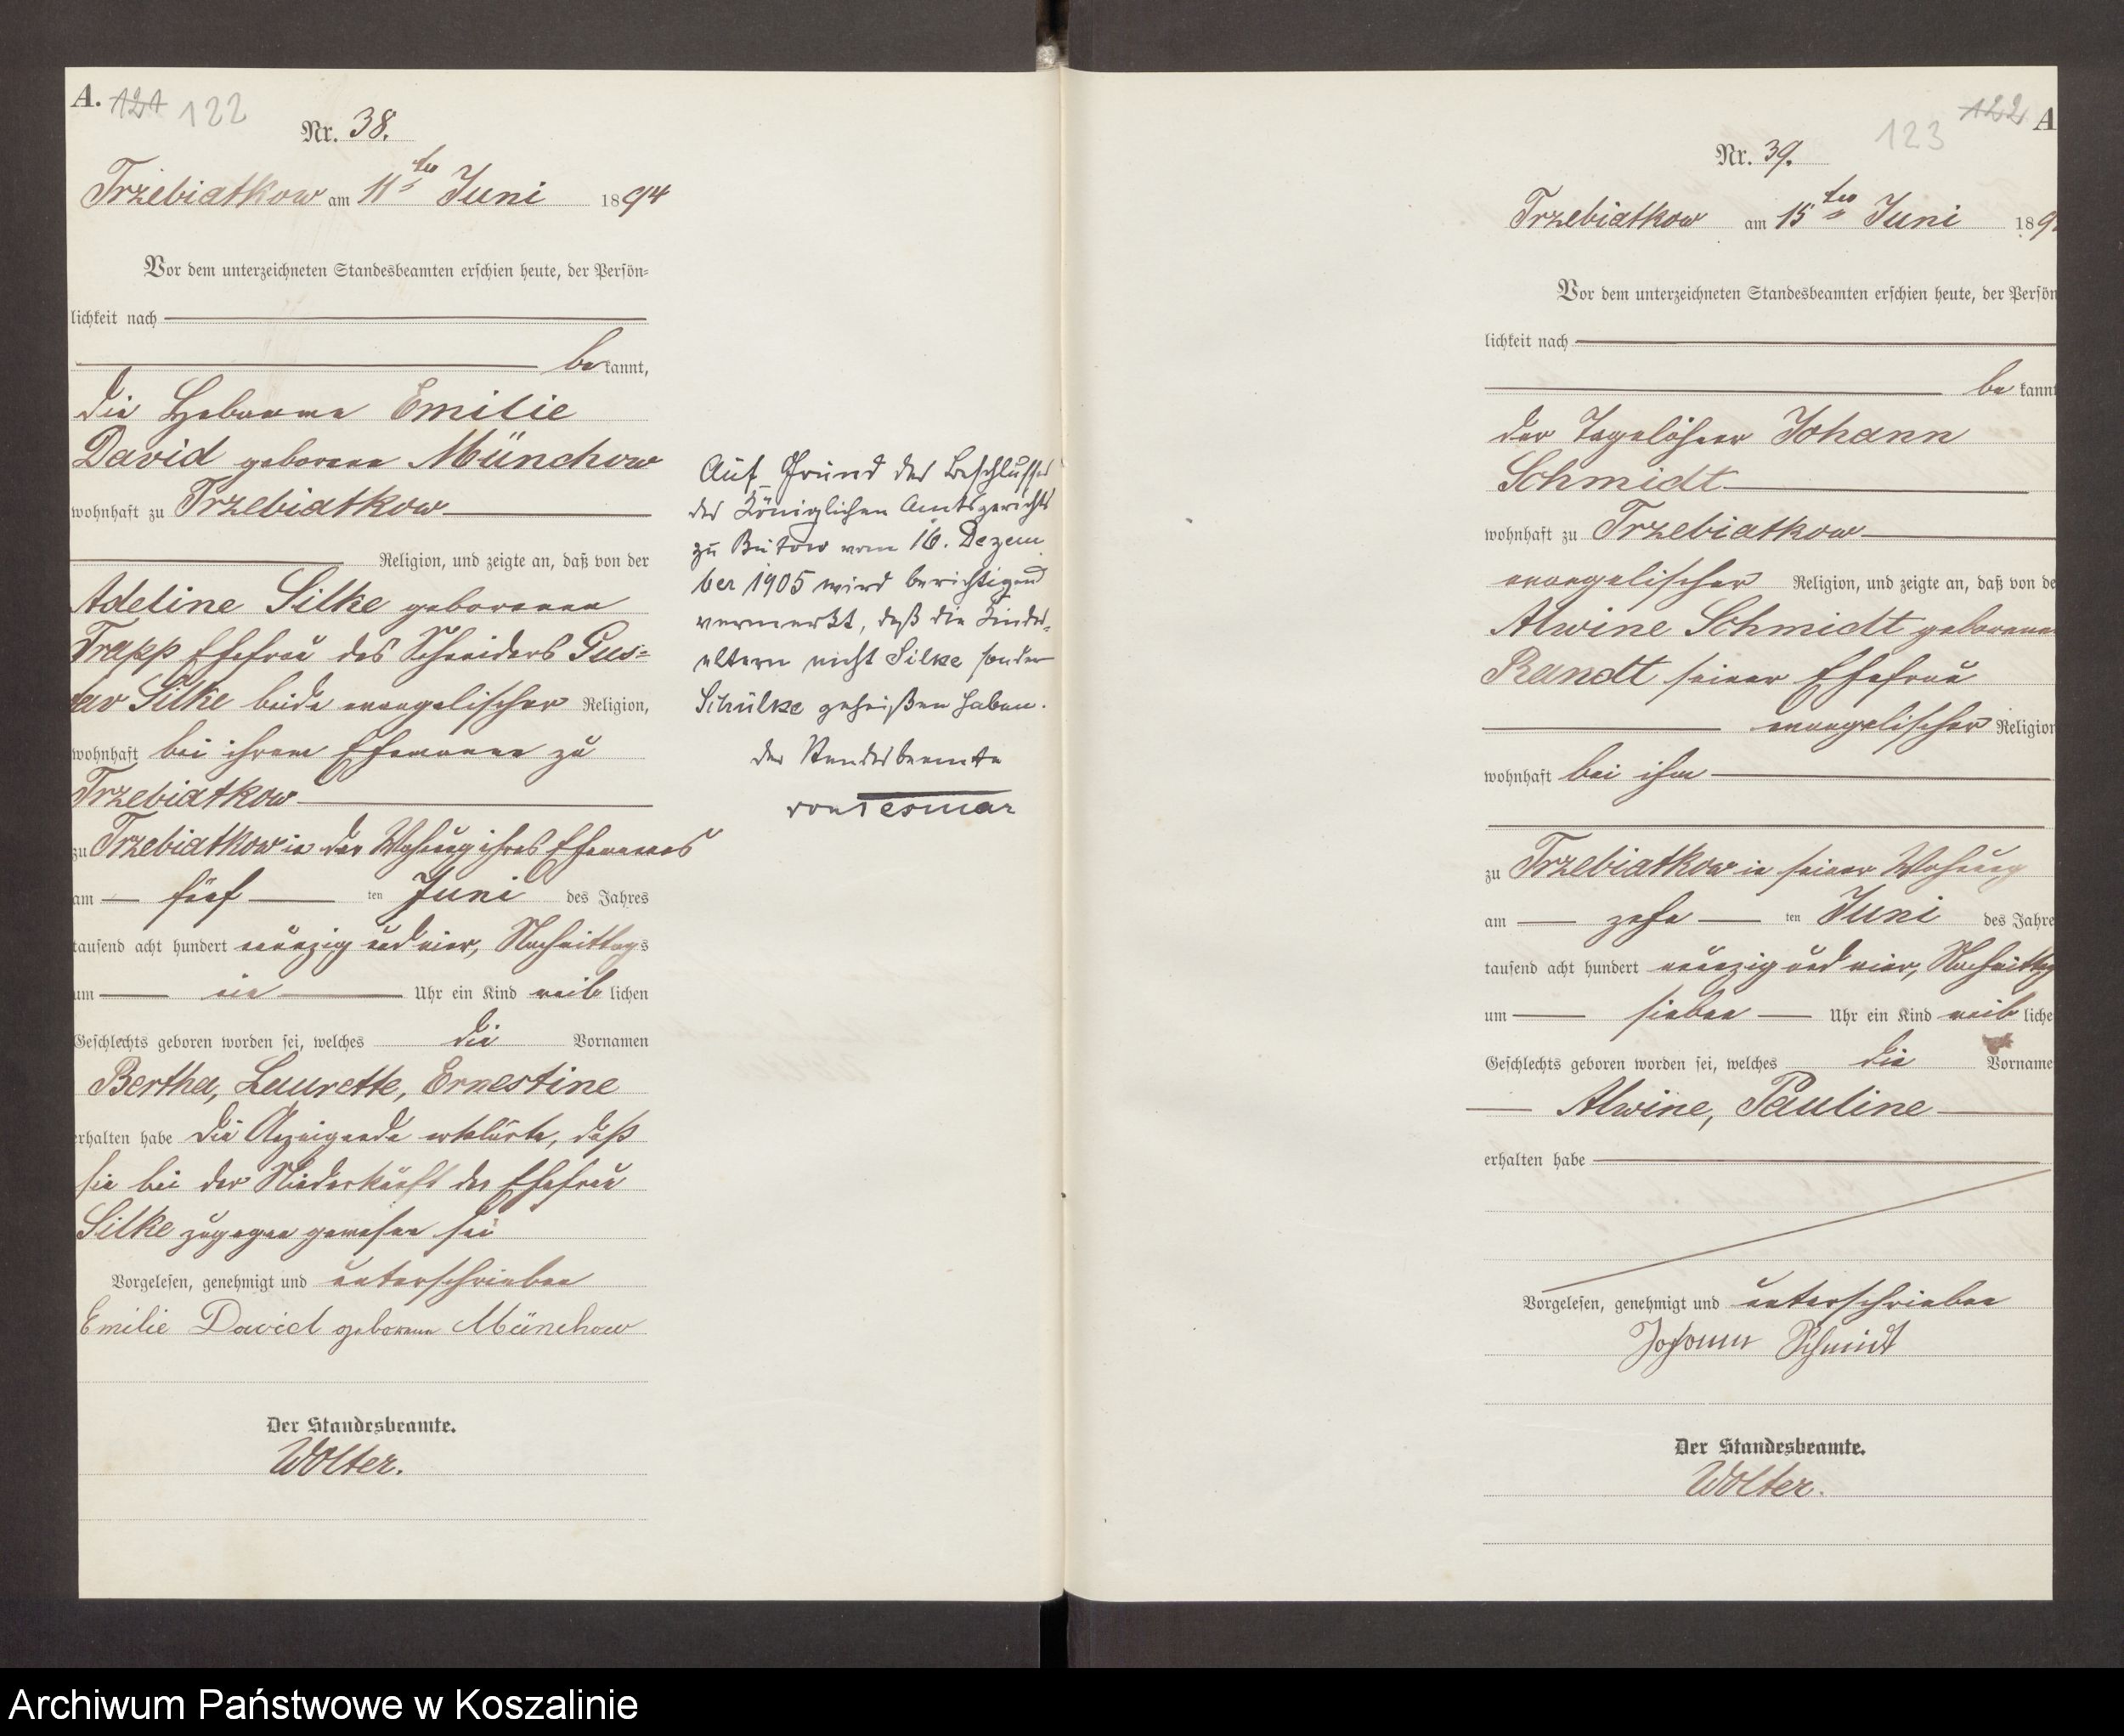 A. 121 122
Nr. 38.
Trzebiatkow am 11ten Juni 1894
Vor dem unterzeichneten Standesbeamten erschien heute, der Persön-
lichkeit nach
bekannt,
die Hebamme Emilie
David geborene Münchow
wohnhaft zu Trzebiatkow
Religion, und zeigte an, daß von der
Adeline Silke geborenen
Trapp Ehefrau des Schneiders Gus-
tav Silke beide evangelischer Religion,
wohnhaft bei ihrem Ehemanne zu
Trzebiatkow
zu Trzebiatkow in der Wohnung ihres Ehemannes
am fünf ten Juni des Jahres
tausend acht hundert neunzig und vier, Nachmittags
um ein Uhr ein Kind weiblichen
Geschlechts geboren worden sei, welches die Vornamen
Bertha, Laurette, Ernestine
erhalten habe die Anzeigende erklärte, daß
sie bei der Niederkunft der Ehefrau
Silke zugegen gewesen sei
Vorgelesen, genehmigt und unterschrieben
Emilie David geborene Münchow
Der Standesbeamte.
Wolter.
Auf Grund des Beschlusses
des Königlichen Amtsgerichts
zu Bütow vom 16. Dezem
ber 1905 wird berichtigend
vermerkt, daß die Kindes-
eltern nicht Silke sondern
Schülke geheißen haben.
Der Standesbeamte
von Tesmar
122 A
123
Nr. 39.
Trzebiatkow am 15ten Juni 189
Vor dem unterzeichneten Standesbeamten erschien heute, der Persön
lichkeit nach
bekannt
der Tagelöhner Johann
Schmidt
wohnhaft zu Trzebiatkow
evangelischer Religion, und zeigte an, daß von de
Alwine Schmidt geborene
Randt seiner Ehefrau
evangelischer Religion
wohnhaft bei ihm
zu Trzebiatkow in seiner Wohnung
am zehn ten Juni des Jahre
tausend acht hundert neunzig und vier, Nachmittag
um sieben Uhr ein Kind weibliche
Geschlechts geboren worden sei, welches die Vorname
Alwine, Pauline
erhalten habe
Vorgelesen, genehmigt und unterschrieben
Johann Schmidt
Der Standesbeamte.
Wolter.
Archiwum Państwowe w Koszalinie